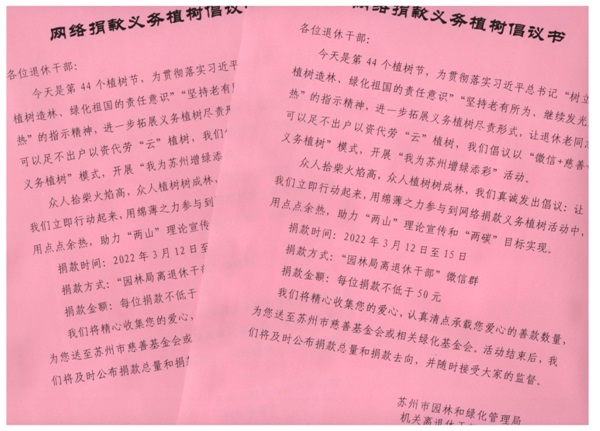 网络捐款义务植树倡议
各位退休干部:
今天是第 44 个植树节，为贯彻落实习近平
植树造林、绿化祖国的责任意识”“坚持老有
热”的指示精神，进一步拓展义务植树尽责形
可以足不出户以资代劳“云”植树，我们
义务植树”模式，开展“我为苏州增绿添
众人拾柴火焰高，众人植树树成林，
我们立即行动起来，用绵薄之力参与到网
用点点余热，助力“两山”理论宣传
捐款时间：2022 年 3 月 12 日至
捐款方式：“园林局离退休干
捐款金额：每位捐款不低于
我们将精心收集您的爱心，
为您送至苏州市慈善基金会或
们将及时公布捐款总量和捐
网络捐款义务植树倡议书
各位退休干部:
今天是第 44 个植树节，为贯彻落实习近平总书记“树立
植树造林、绿化祖国的责任意识”“坚持老有所为，继续发光
热”的指示精神，进一步拓展义务植树尽责形式，让退休老同
可以足不出户以资代劳“云”植树，我们倡议以“微信+慈善
义务植树”模式，开展“我为苏州增绿添彩”活动。
众人拾柴火焰高，众人植树树成林，我们真诚发出倡议：让
我们立即行动起来，用绵薄之力参与到网络捐款义务植树活动中，
用点点余热，助力“两山”理论宣传和“两碳”目标实现。
捐款时间：2022 年 3 月 12 日至 15 日
捐款方式：“园林局离退休干部”微信群
捐款金额：每位捐款不低于 50 元
我们将精心收集您的爱心，认真清点承载您爱心的善款数量，
为您送至苏州市慈善基金会或相关绿化基金会。活动结束后，我
们将及时公布捐款总量和捐款去向，并随时接受大家的监督。
苏州市园林和绿化管理局
机关离退休干